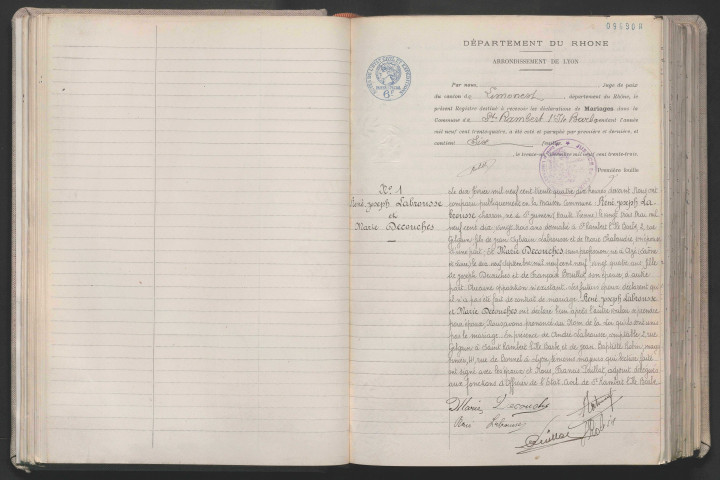 DÉPARTEMENT DU RHONE
ARRONDISSEMENT DE LYON
Par nous, Juge de paix
du canton de Limonest, département du Rhône, le
présent Registre destiné à recevoir les déclarations de Mariages dans la
Commune de St Rambert l'Ile Barbe pendant l'année
mil neuf cent trente-quatre, a été coté et paraphé par première et dernière, et
contient feuilles.
, le trente-et- décembre mil neuf cent trente-trois.
Première feuille
N° 1
René Joseph Labrousse
et
Marie Decouches
Le dix février mil neuf cent trente quatre dix heures devant Nous ont
comparu publiquement en la Maison Commune : René Joseph La-
brousse né à St (Haute Vienne) le vingt trois Mai mil
neuf cent dix, vingt trois ans domicilié à St Rambert l'Ile Barbe, 2 rue
fils de Jean Sylvain Labrousse et de Marie
d'une part. Et Marie Decouches sans profession, née à Azé (Saône
et Loire) le dix sept Septembre mil neuf cent neuf, vingt quatre ans, fille
de Joseph Decouches et de Françoise son épouse, d'autre
part. Aucune opposition n'existant, les futurs époux déclarent qu'
il n'a pas été fait de contrat de mariage. René Joseph Labrousse
et Marie Decouches ont déclaré l'un après l'autre vouloir se prendre
pour époux. Nous avons prononcé au Nom de la Loi qu'ils sont unis
par le mariage. En présence de André Labrousse, comptable, 2 rue
à Saint Rambert l'Ile Barbe et de Jean Baptiste
rue de à Lyon, témoins majeurs qui lecture faite
ont signé avec les époux et Nous, Francis adjoint délégué
aux fonctions d'Officier de l'Etat Civil de St Rambert l'Ile Barbe.
Marie Decouches
Labrousse